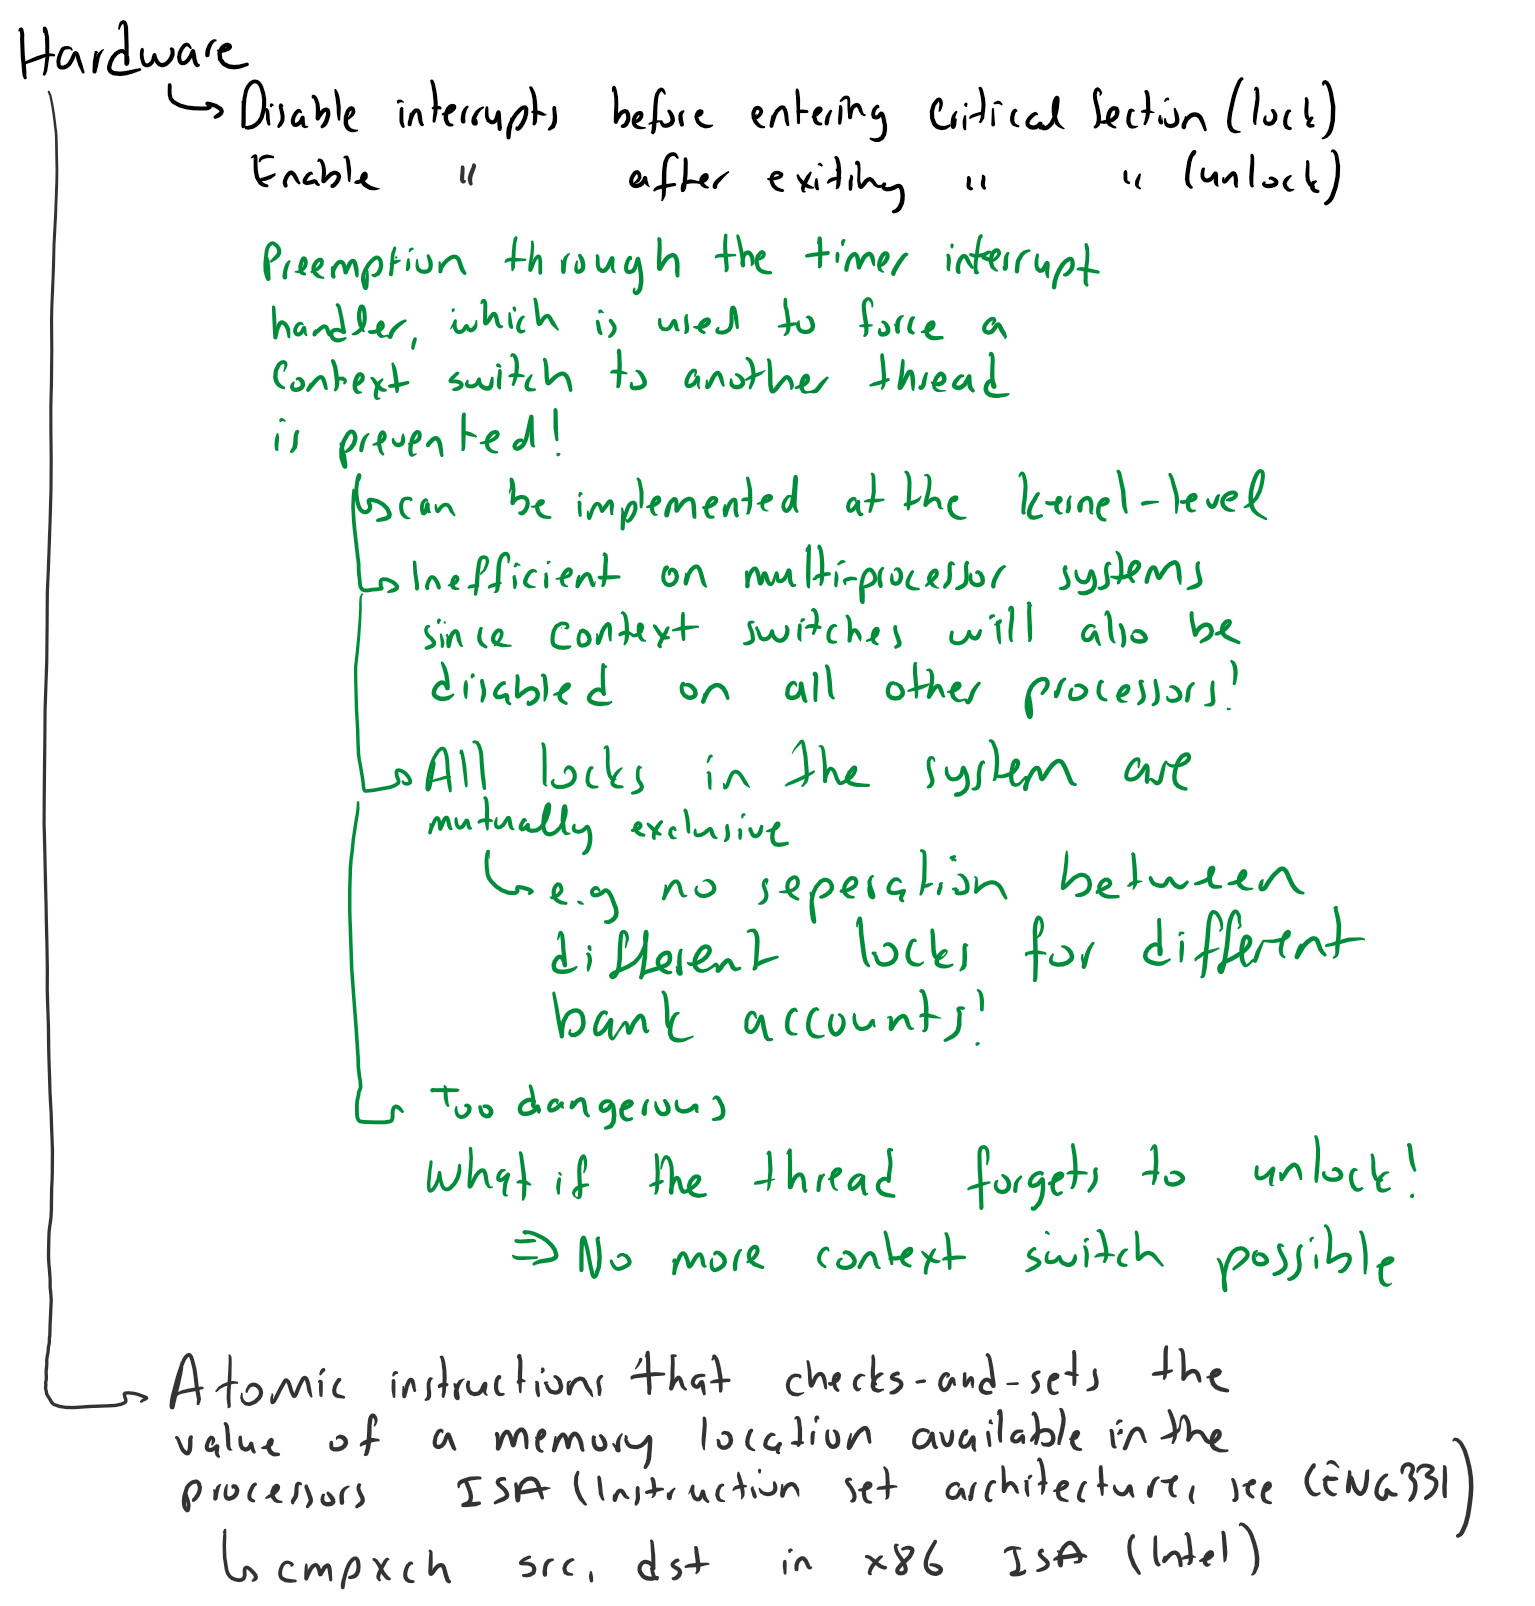 Hardware
Disable interrupts before entering critical section (lock)
Enable " after exiting " " (unlock)
Preemption through the timer interrupt
handler, which is used to force a
context switch to another thread
is prevented!
can be implemented at the kernel-level
Inefficient on multi-processor systems
since context switches will also be
disabled on all other processors!
All locks in the system are
mutually exclusive
e.g no seperation between
different locks for different
bank accounts!
Too dangerous
what if the thread forgets to unlock!
⇒ No more context switch possible
Atomic instructions that checks-and-sets the
value of a memory location available in the
processors ISA (Instruction set architecture, see CENG331)
cmpxch src, dst in x86 ISA (Intel)